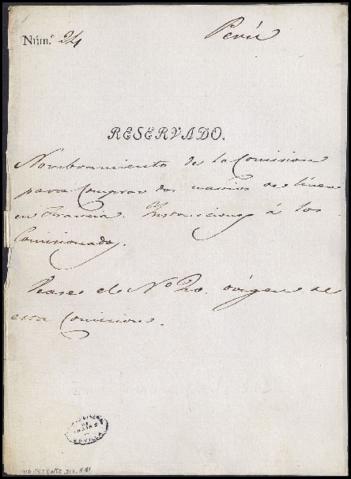 Núm.º 24
Perú
RESERVADO.
Nombramiento de la Comision
para comprar dos navios de linea
en Francia. Instrucciones á los
Comisionados.
Vease el Nº 20. origen de
esta Comision.
SEVILLA